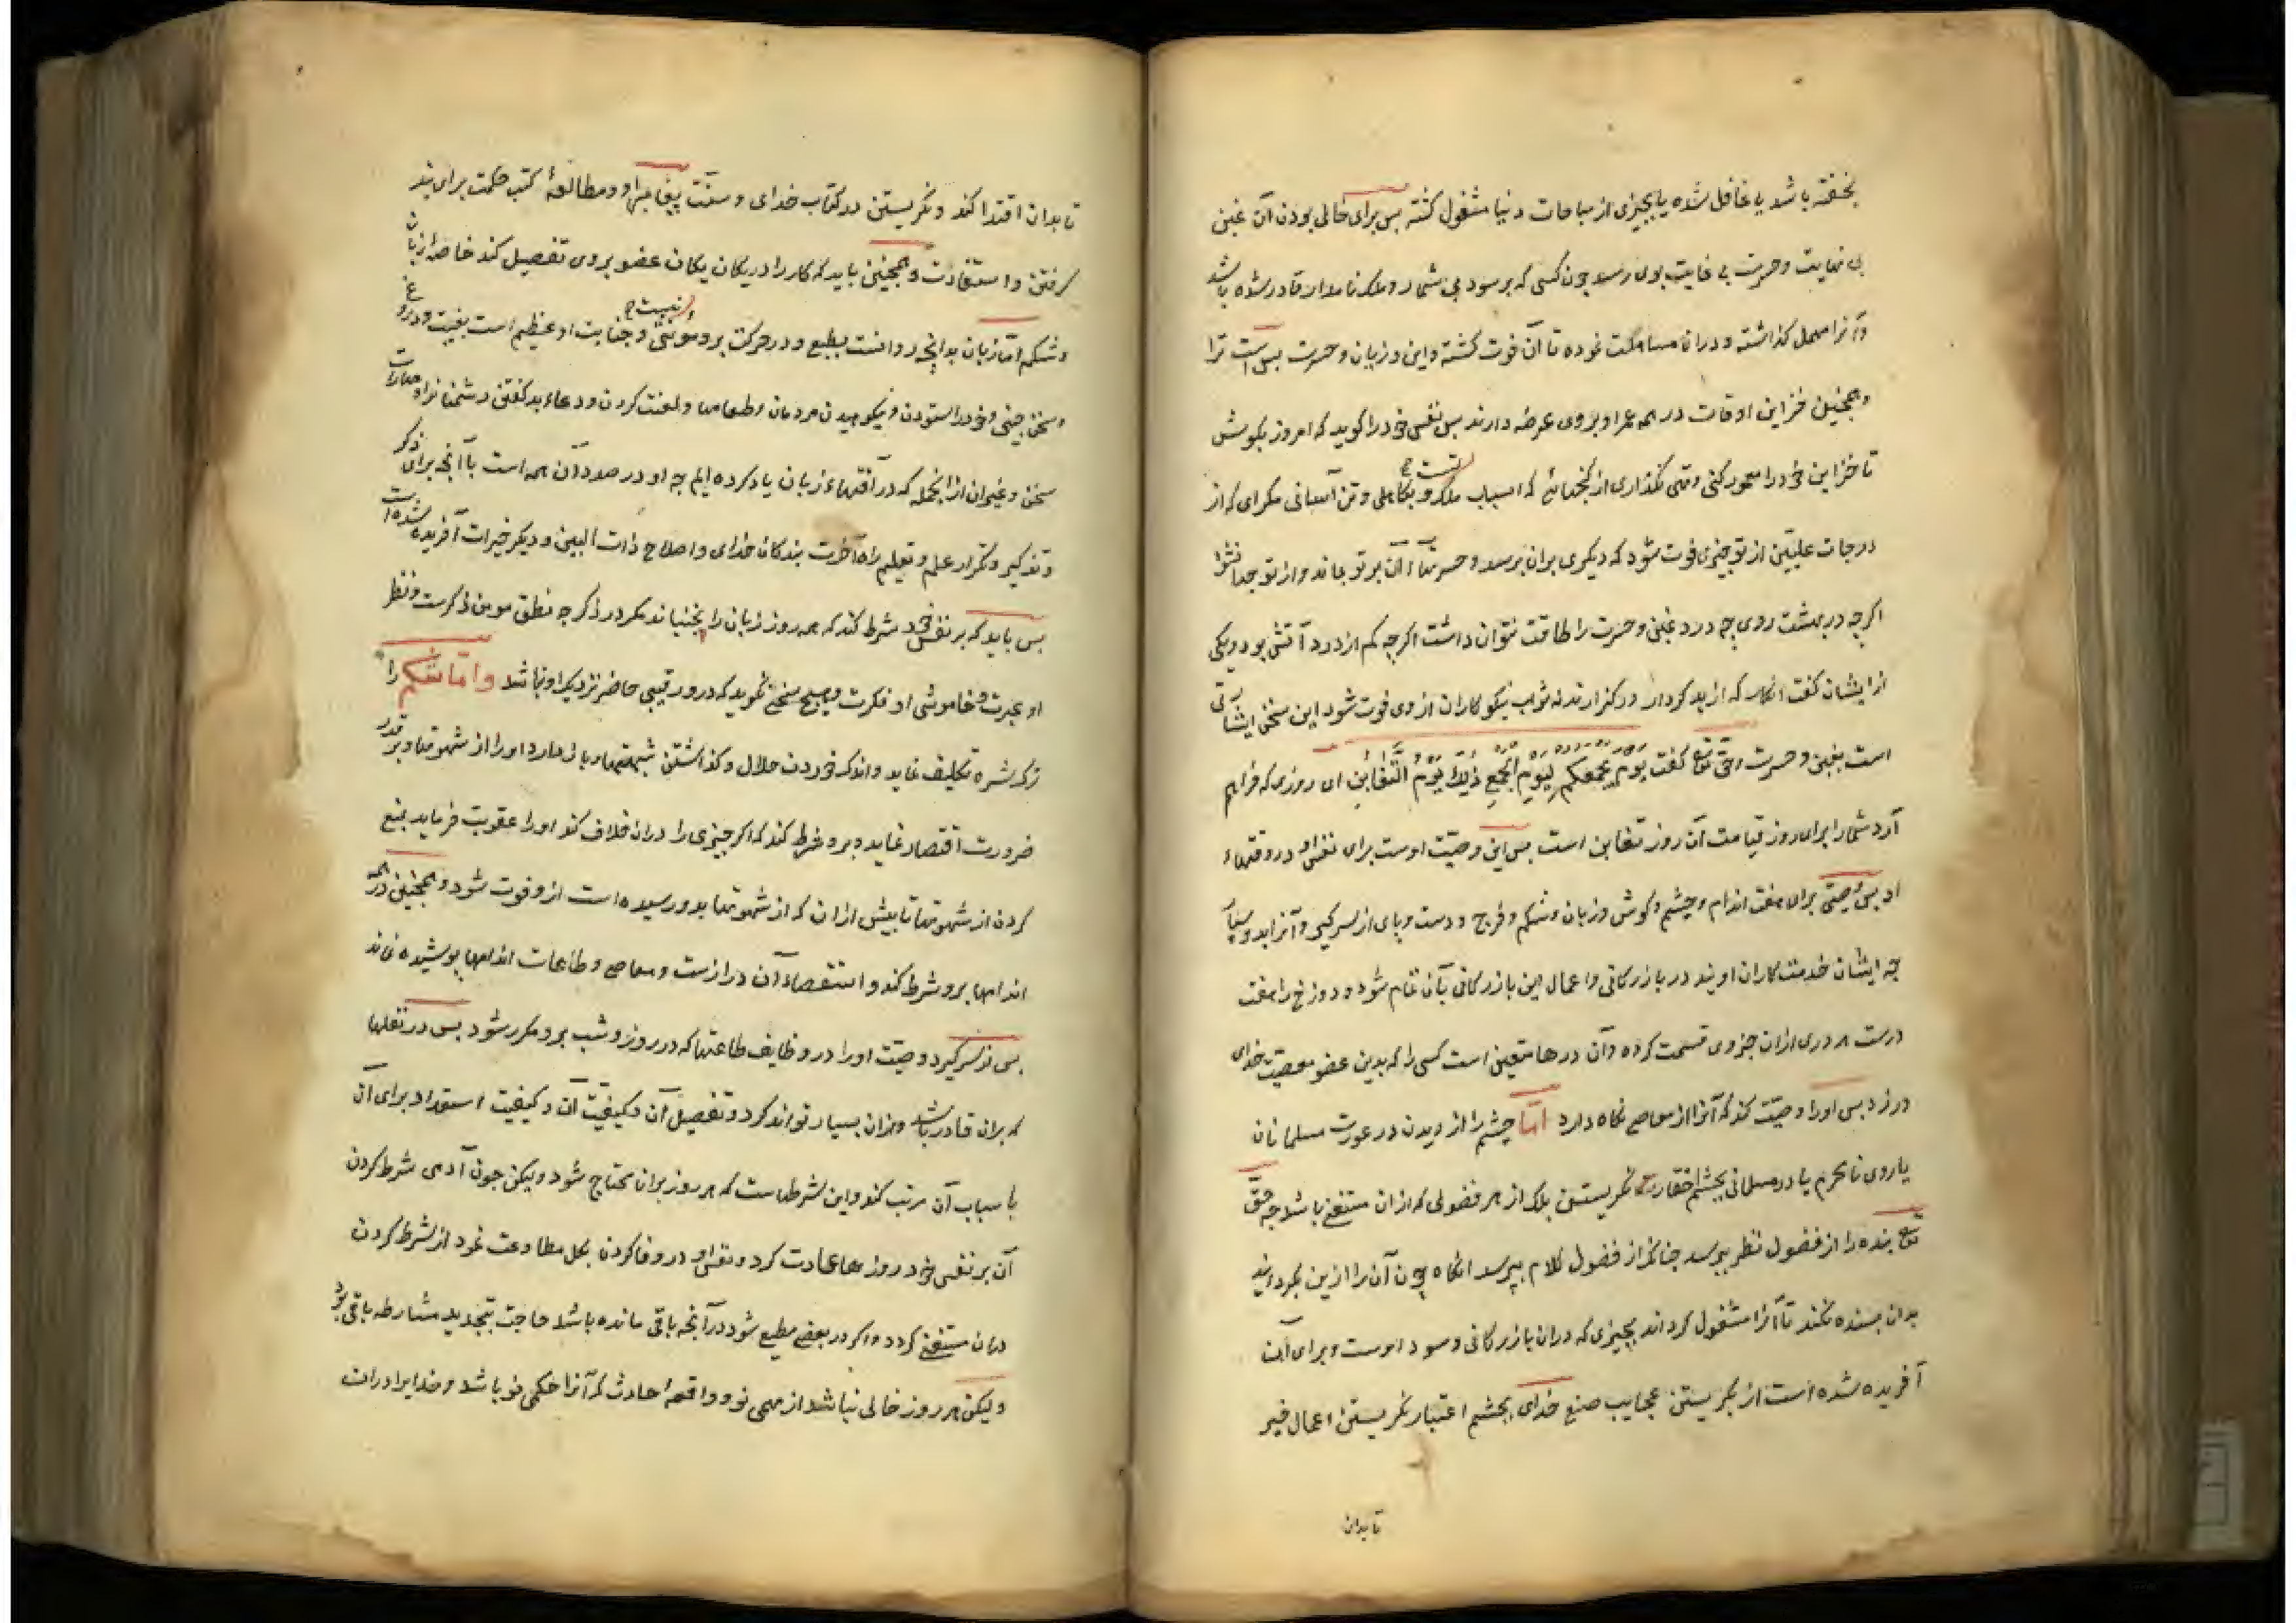 بخفته باشد یا غافل شده یا بچیزی از مباحات دنیا مشغول کشته بس برای خالی بودن آن غبن
بی نهایت وحسرت بی غایت بوی رسد چون کسی که برسود بی شمار وملک نامدار قادر شده باشد
وآنرا مهمل کذاشته ودران مسامحت نموده تا آن فوت کشته واین وزیان وحسرت بس است ترا
وهمجنین خزاین اوقات در همه عمر او بروی عرضه دارند بس نفس خود را کوید که امروز بکوش
تا خزاین خود را معمور کنی وتهی نکذاری از کنجهائی که اسباب ملک تست و بکاهلی وتن آسانی مکرای که از
درجات علیّین از تو چیزی فوت شود که دیکری بران برسد وحسرتها آن بر تو بماند واز تو جدا نشود
اکرچه در بهشت روی چه درد غبن وحسرت را طاقت نتوان داشت اکرچه کم از درد آتش بود ویکی
از ایشان کفت انکار که از بد کردار درکذارند نه ثواب نیکوکاران از وی فوت شود این سخن اشارتی
است بغبن وحسرت وحق تع کفت یوم یجمعکم لِیَوْمِ الجَمْعِ ذٰلِکَ یَوْمُ التَّغَابُن ای روزی که فراهم
آرد شما را برای روز قیامت آن روز تغابن است بس این وصیّت اوست برای نفس او در وقتهاء
او بس وصیتی برای هفت اندام وچشم وکوش وزبان وشکم وفرج ودست وپای از سر کیرد وآنرا بدو سپارد
چه ایشان خدمتکاران اویند در بازرکانی واعمال این بازرکانی بآن تمام شود ودوزخ را هفت
درست هر دری ازان جزوی قسمت کرده وآن درها متعین است کسی را که بدین عضو معصیت خدای
ورزد بس اورا وصیّت کند که آنرا از معاصی نکاه دارد امّا چشم را از دیدن در عورت مسلمانان
یا روی نامحرم یا در مسلمانی بچشم احقارت نکریستن بلک از هر فضولی که ازان مستغنی باشد چه حقّ
تع بنده را از فضول نظر بپرسد چنانک از فضول کلام بپرسد انکاه چون آن را ازین بکردانید
بدان بسنده نکند تا آنرا مشغول کرداند بچیزی که دران بازرکانی وسود اوست وبرای آن
آفریده شده است از نکریستن عجایب صنع خدای بچشم اعتبار ونکریستن اعمال خیر
تا بدان
تا بدان اقتدا کند ونکریستن در کتاب خدای وسنّت پیغامبر او ومطالعهٔ کتب حکمت برای پند
کرفتن واستفادت وهمجنین باید که کار را در یکان یکان عضو بروی تفصیل کند خاصه از زبان
وشکم امّا زبان بدانچه روانست بطبع ودر حرکت برو مونتی نیست وجنایت او عظیم است بغیبت ودروغ
وسخن چینی وخود را ستودن ونکوهیدن مردمان وطعامها ولعنت کردن ودعاء بد کفتن دشمنانرا ومماراة
سخن وغیران ازانجمله که در آفتهاء زبان یاد کرده ایم چه او در صدد آن همه است با آنچه برای ذکر
وتذکیر وتکرار علم وتعلیم راه آخرت بندکان خدای واصلاح ذات البین ودیکر خیرات آفریده شده است
بس باید که بر نفس خود شرط کند که همه روز زبان را نجنباند مکر در ذکر چه نطق مومن ذکرست ونظر
او عبرت وخاموشی او فکرت وهیچ سخن نکوید که درو رقیبی حاضر نزدیک او نباشد وامّا شکم را
ترک شره تکلیف نماید واندک خوردن حلال وکذاشتن شبهتها وباز دارد اورا از شهوتها وبر قدر
ضرورت اقتصار نماید وبرو شرط کند که اکر چیزی را دران خلاف کند اورا عقوبت فرماید بمنع
کردن از شهوتها تا بیش ازان که از شهوتها بدو رسیده است از و فوت شود وهمجنین در همه
اندامها برو شرط کند واستقصاء آن درازست ومعاصی وطاعات اندامها پوشیده نماند
بس از سر کیرد وصیّت اورا در وظایف طاعتها که در روز وشب برو مکرر شود بس در نفلها
که بران قادر باشد وازان بسیار تواند کرد وتفصیل آن وکیفیّت آن وکیفیت استعداد برای آن
باسباب آن مرتب کند واین شرطهاست که هر روز بران محتاج شود ولیکن چون آدمی شرط کردن
آن بر نفس خود روزها عادت کرد ونفس او در وفا کردن بکل مطاوعت نمود از شرط کردن
دران مستغنی کردد واکر در بعضی مطیع شود در آنچه باقی مانده باشد حاجت بتجدید مشارطه باقی بود
ولیکن هر روز خالی نباشد از مهمی نو وواقعهٔ حادث که آنرا حکمی نو باشد وخدایرا دران